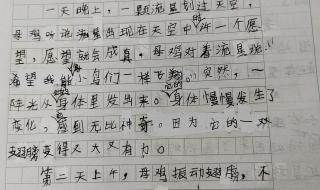 一天晚上，一颗流星划过天空，
母鸡听说流星出现在天空中时许一个愿
望，愿望就会成真。母鸡对着流星说：“
希望我能像小鸟们一样飞翔。”突然，一
阵光从它的身体里发出来。它的身体慢慢发生了
变化，感到无比神奇。因为它的一双
翅膀变得又大又有力。
第二天上午，母鸡振动翅膀，不